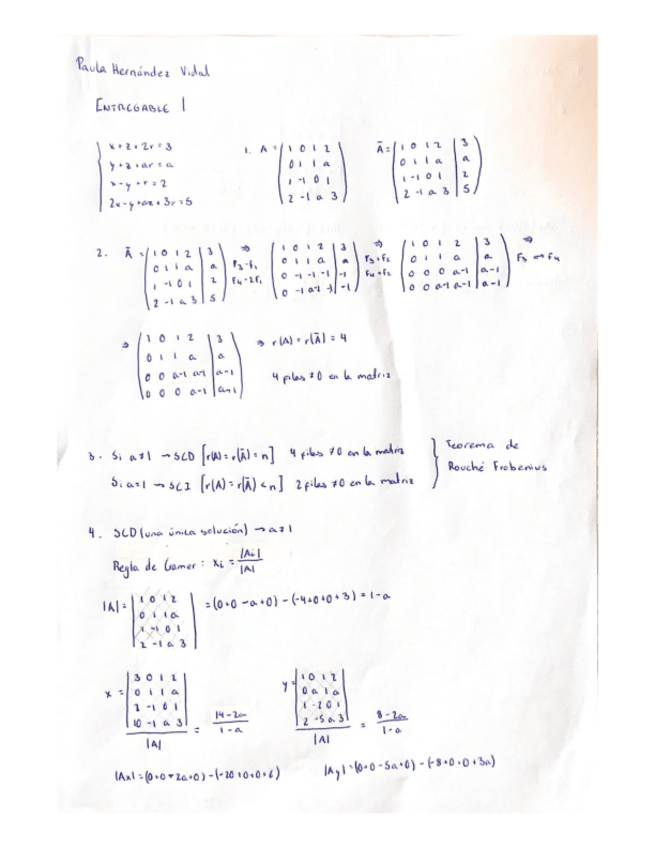 Paula Hernández Vidal
ENTREGABLE 1
x+z+2r=3
y+z+ar=a
x-y+r=2
2x-y+az+3r=5
1. A = ( 1 0 1 2
0 1 1 a
1 -1 0 1
2 -1 a 3 )
Ā = ( 1 0 1 2 | 3
0 1 1 a | a
1 -1 0 1 | 2
2 -1 a 3 | 5 )
2. Ā = ( 1 0 1 2 | 3
0 1 1 a | a
1 -1 0 1 | 2
2 -1 a 3 | 5 )
⇒
F3-F1
F4-2F1
( 1 0 1 2 | 3
0 1 1 a | a
0 -1 -1 -1 | -1
0 -1 a-2 -1 | -1 )
⇒
F3+F2
F4+F2
( 1 0 1 2 | 3
0 1 1 a | a
0 0 0 a-1 | a-1
0 0 a-1 a-1 | a-1 )
⇒
F3 ↔ F4
⇒ ( 1 0 1 2 | 3
0 1 1 a | a
0 0 a-1 a-1 | a-1
0 0 0 a-1 | a-1 )
⇒ r(A) = r(Ā) = 4
4 filas ≠0 en la matriz
3. Si a≠1 → SCD [r(A)=r(Ā)=n] 4 filas ≠0 en la matriz
Si a=1 → SCI [r(A)=r(Ā)<n] 2 filas ≠0 en la matriz
Teorema de
Rouché Frobenius
4. SCD (una única solución) → a≠1
Regla de Cramer: xi = |Ai| / |A|
|A| = | 1 0 1 2
0 1 1 a
1 -1 0 1
2 -1 a 3 | = (0+0-a+0) - (-4+0+0+3) = 1-a
x = | 3 0 1 2
0 1 1 a
2 -1 0 1
10 -1 a 3 |
|A|
= 14-2a / 1-a
y = | 1 0 1 2
0 a 1 a
1 -2 0 1
2 -5 a 3 |
|A|
= 8-2a / 1-a
|Ax| = (0+0+2a+0) - (-20+0+0+6)
|Ay| = (0+0-5a+0) - (-8+0+0+3a)